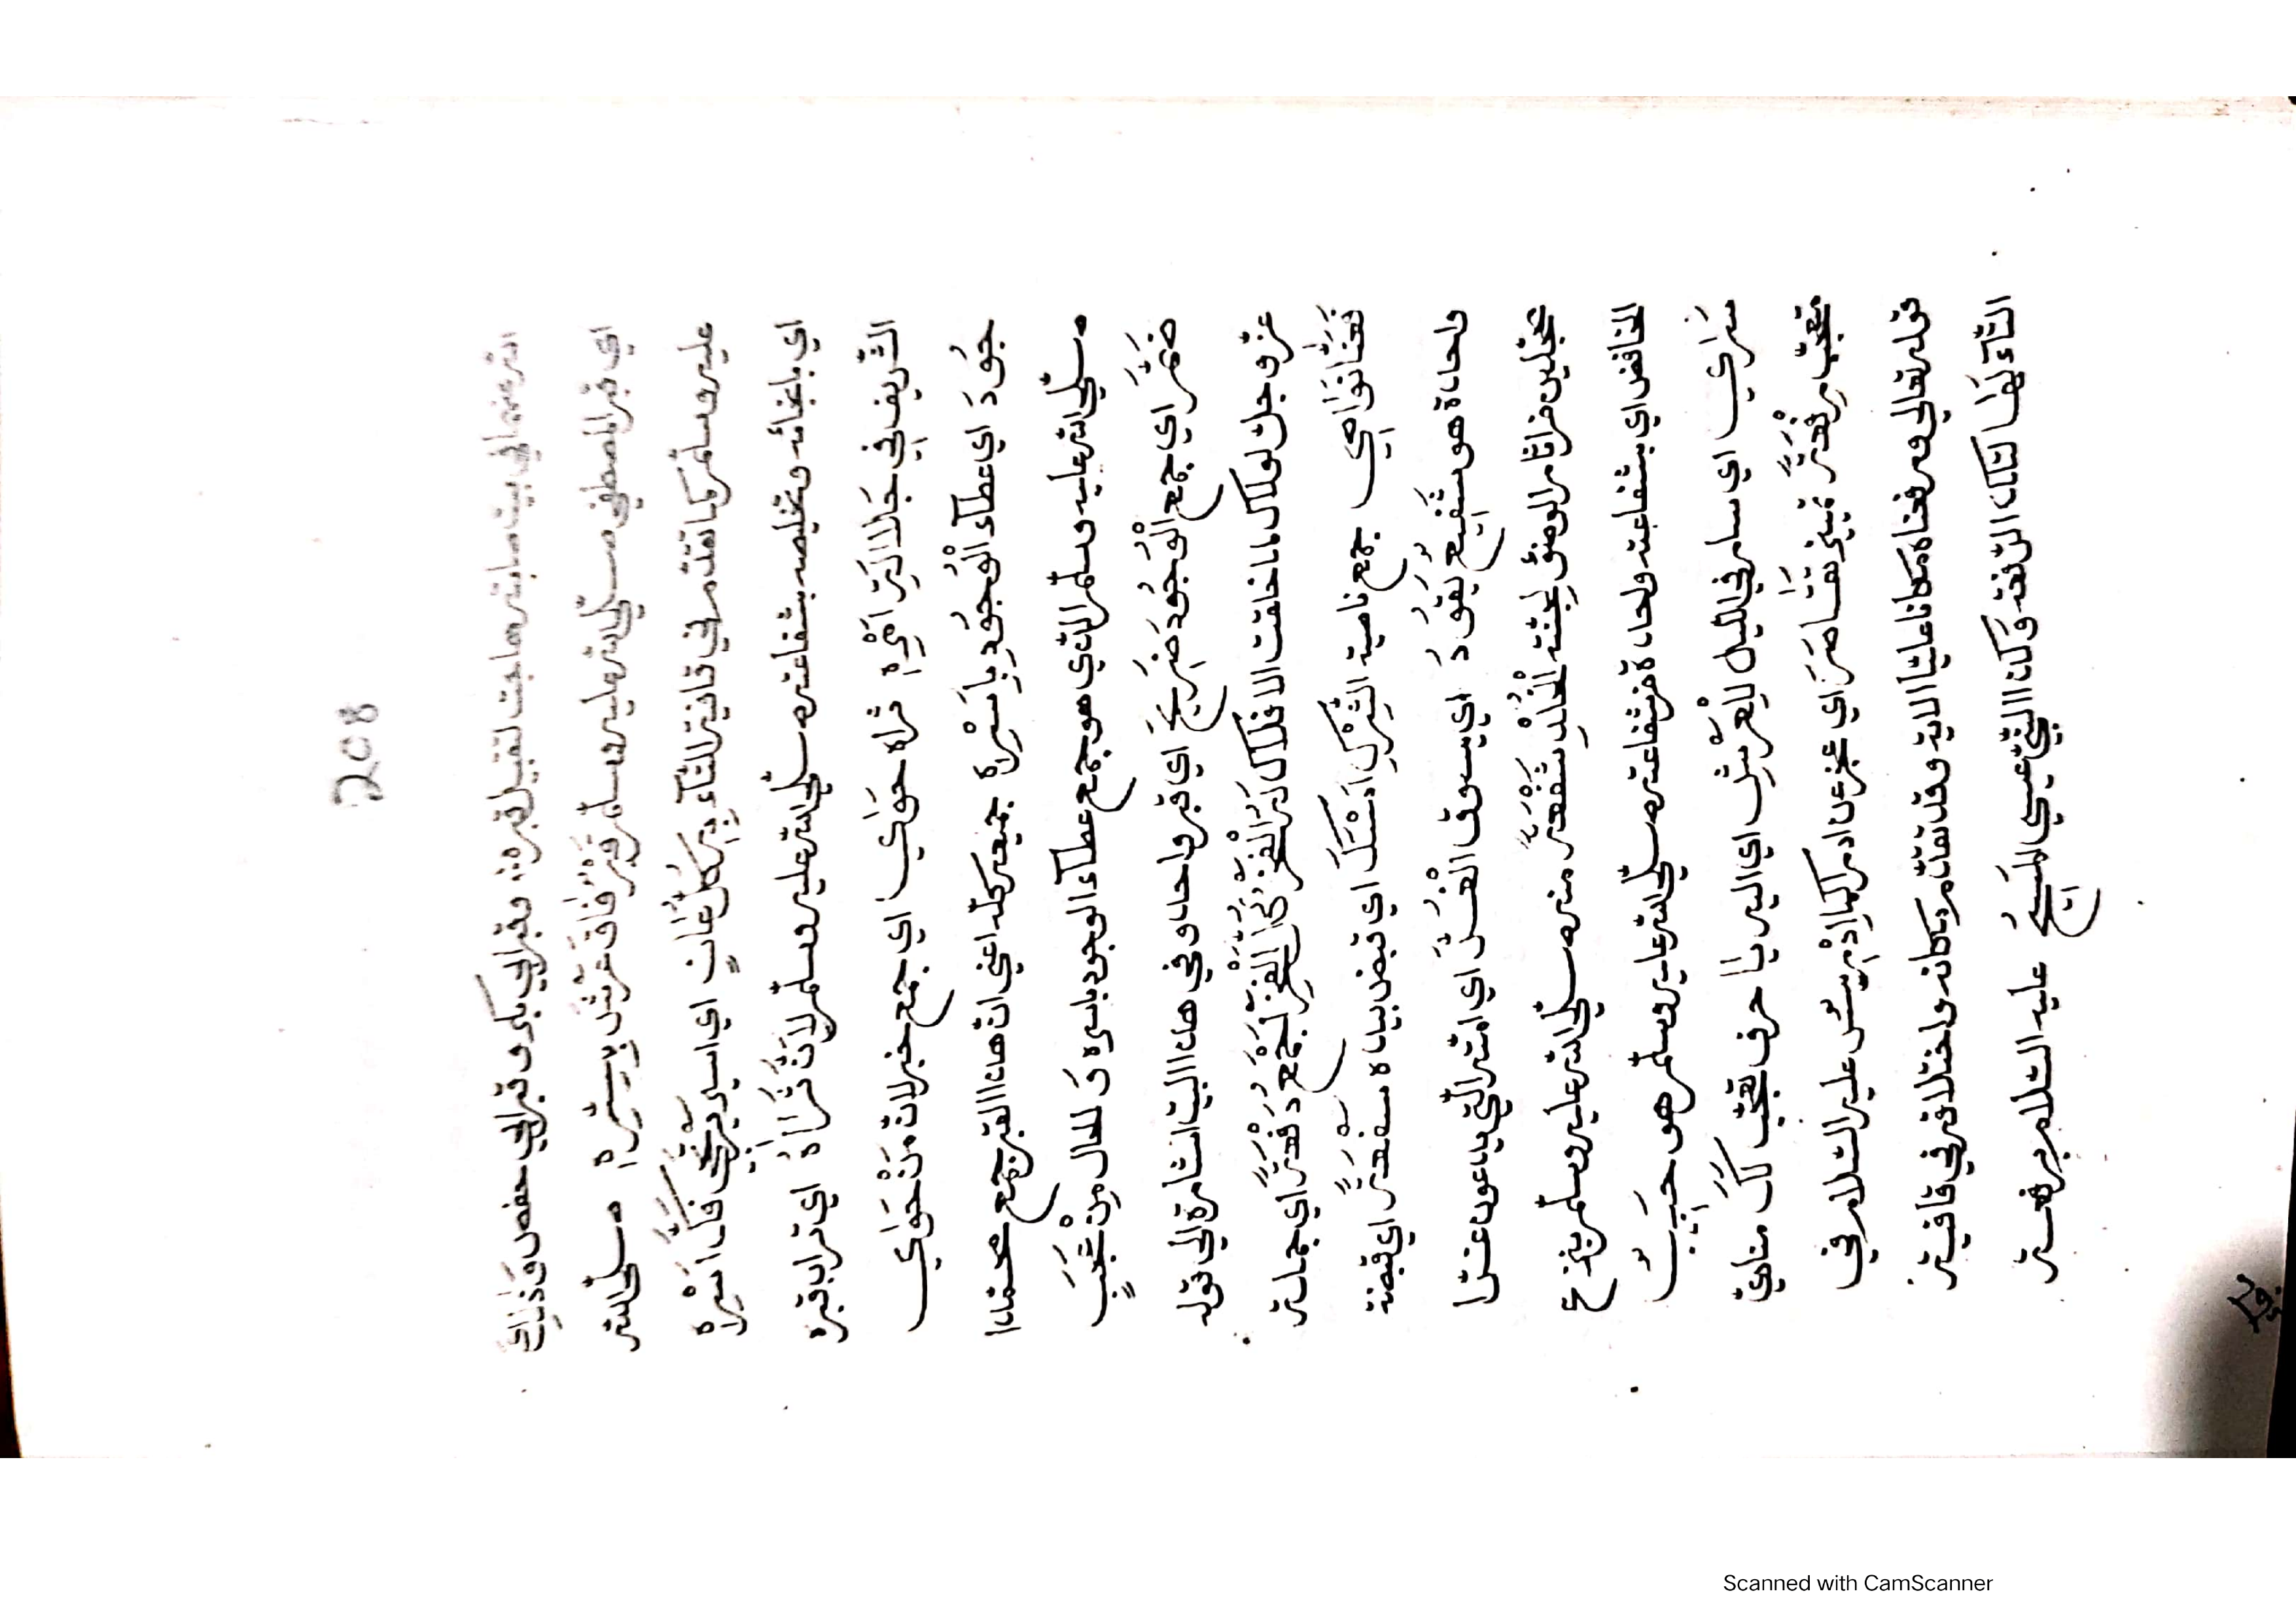 208
الله عنها في بيت صابته هاجت لتقبيل قبره وقبر ابي بكر وقبر ابي حفص وَذَاكَ
اي قبر المصطفى صلى الله عليه وسلم قَبْرٌ فَاقَ عَرْشَ بِسِرِّهِ صلى الله
عليه وسلم كما تقدم في قافية الثآء بِهِ كُلُّ عَانٍ اي اسير يَرْتَجِي فَكَّ اَسْرِهِ
اي بانجائه وتخليصه بشفاعته صلى الله عليه وسلم لاَنَّ ثَرَاهُ اي تراب قبره
الشريف في جَلاَلَةِ اَمْرِهِ ثراه حَوَاي اي جمع خبر لانّ مَنْ حَوَاي
جُودَ اي عطآء الْوُجُودِ بِاَسْرِهِ جميعه كله اعني انّ هذا القبر جمع محمدا
صلى الله عليه وسلم الذي هو جمع عطآء الوجود باسره وَ لقال مِنْ عَجَبٍ
ضَمَّ اي جمع الْوُجُودَ ضَرِيحَ اي قبر واحد وفي هذا البيت اشارة الي قوله
عز وجل لولاك ما خلقت الافلاك لَهُ الْفَخْرُ كُلُّ الْفَخْرِ لَجَمْعِ رِفْعَةً اي جملته
فَعَنَّا نَوَاصِي جمع ناصية الشِّرْكِ اَمْسَكَ اي قبض بيده سَفْعَةً اي قبضة
واحدة هو شَفِيعٌ يَقُودُ اي يسوق الْغُرَّ اي امته التي يدعون غرا
محجلين من اثار الوضوء لجنة الْخُلْدِ شَفْعَةً منه صلى الله عليه وسلم بنزع
الخافض اي بشفاعته واحدة من شفاعته صلى الله عليه وسلم هو حَبِيبٌ
سَرَاي اي سار في الليل لِلْعَرْشِ اي اليه يا حرف تعجب لَكَ منادي
متعجب رِفْعَةً تمييز تَقَاصَرَ اي عجز عن ادراكها اِدْرِيسُ عليه السلام في
قوله تعالى ورفعناه مكانا عليا الاية وقد تقدم مكانه واختلافه في قافية
الثآء لَهَا لتلك الرفعة وَكذا النبي عيسي الْمَسِيحُ عليه السلام برفعته